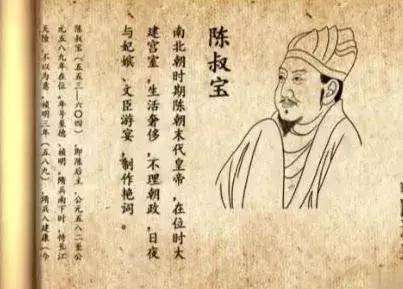 陈叔宝
南北朝时期陈朝末代皇帝，在位时大
建宫室，生活奢侈，不理朝政，日夜
与妃嫔、文臣游宴，制作艳词。
陈叔宝（五五三—六〇四）即陈后主，公元五八二至公
元五八九年在位，年号至德、祯明。隋兵南下时，恃长江
天险，不以为意。祯明三年（五八九），隋兵入建康（今